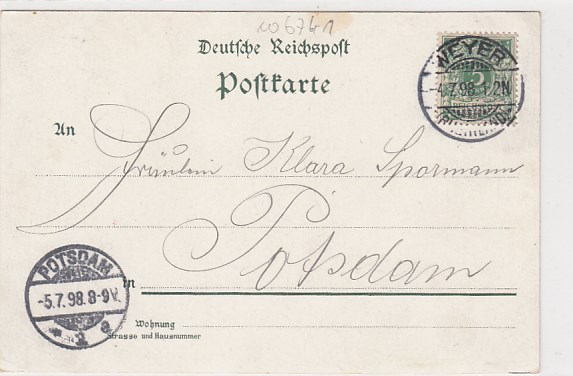 Deutsche Reichspost
Postkarte
WEYER
-4.7.98. 1-2N
(RHEINLAND)
5
An
Fräulein Klara Spormann
Potsdam
in
POTSDAM
-5.7.98.8-9V.
* 3 a
Wohnung
Strasse und Hausnummer